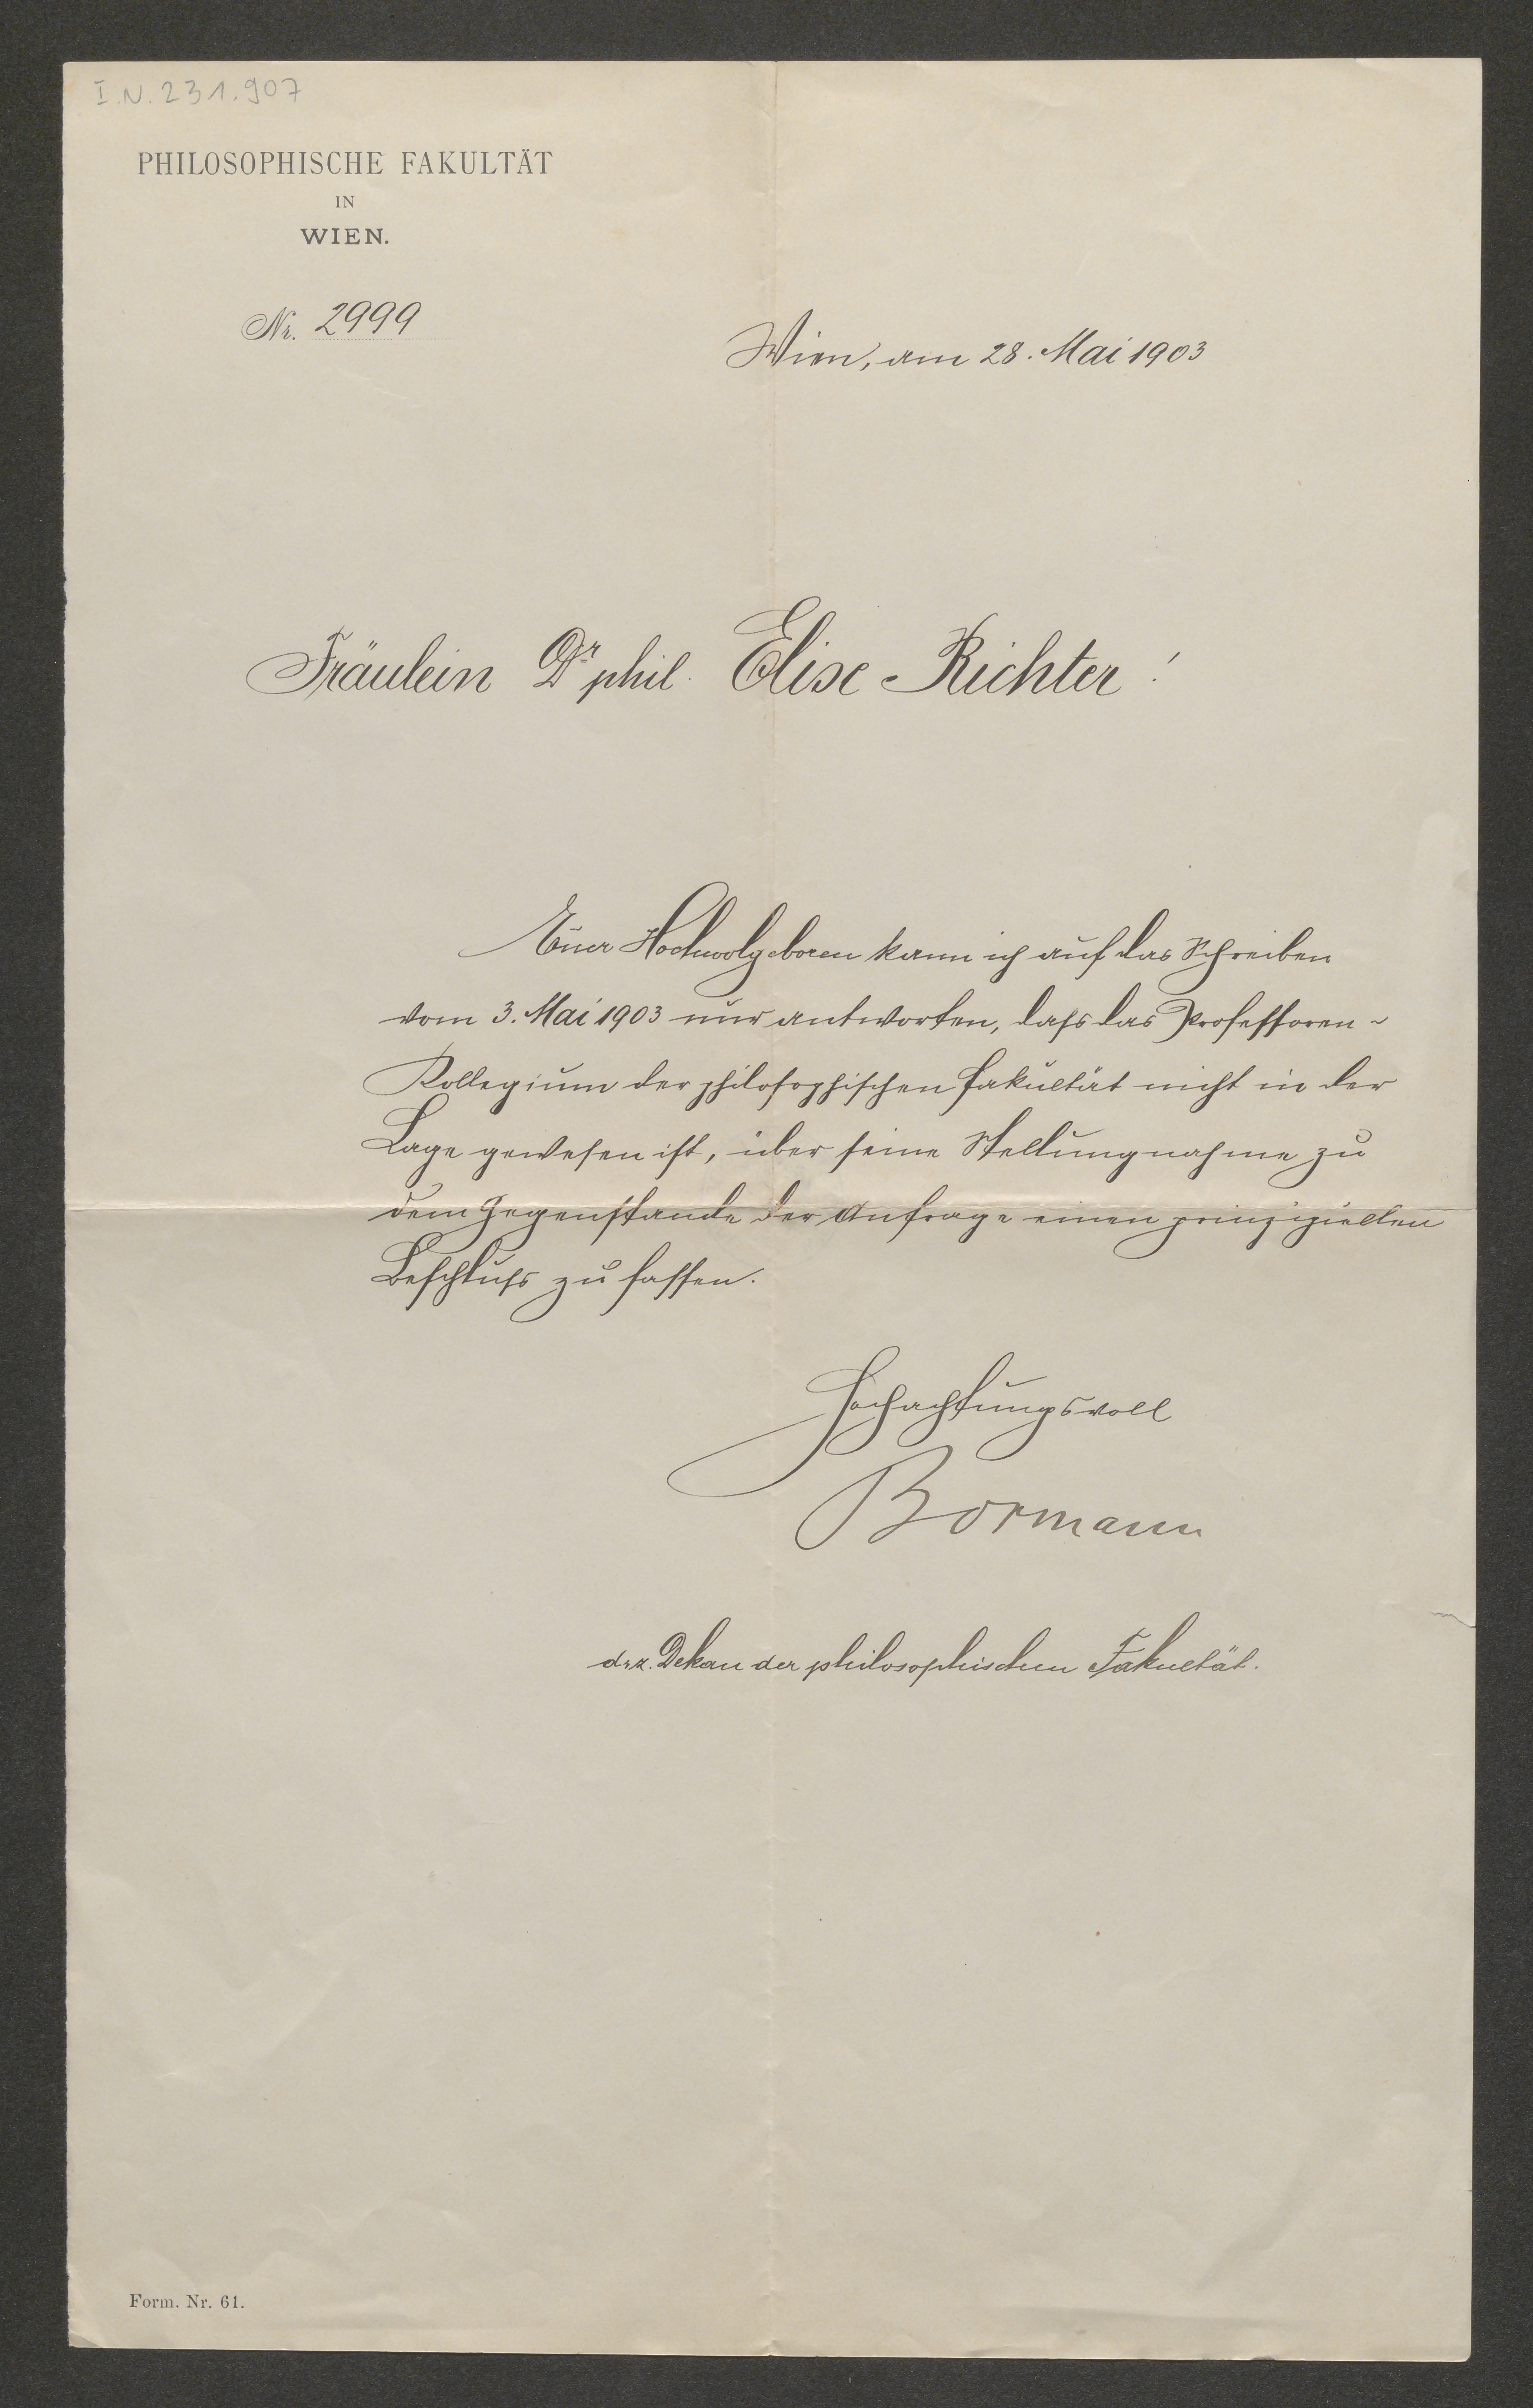 I.N. 231.907
PHILOSOPHISCHE FAKULTÄT
IN
WIEN.
Nr. 2999
Wien, am 28. Mai 1903
Fräulein Dr. phil. Elise Richter!
Euer Hochwolgeboren kann ich auf das Schreiben
vom 3. Mai 1903 nur antworten, dass das Professoren-
Kollegium der philosophischen Fakultät nicht in der
Lage gewesen ist, über seine Stellungnahme zu
dem Gegenstande der Anfrage einen prinzipiellen
Beschluss zu fassen.
Hochachtungsvoll
Bormann
d.z. Dekan der philosophischen Fakultät.
Form. Nr. 61.